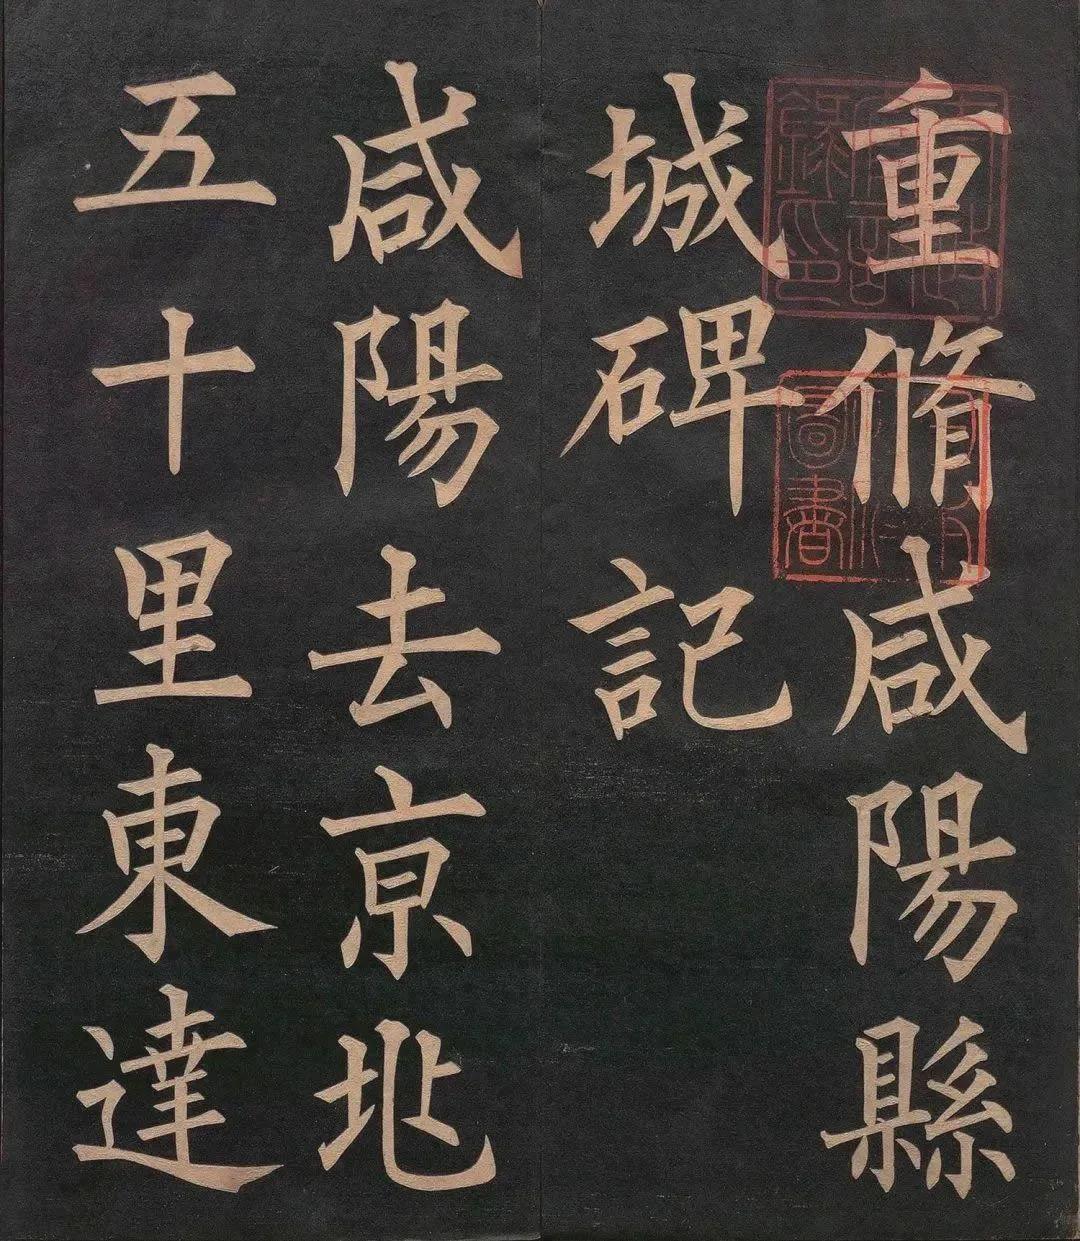 重脩咸陽縣
城碑記
咸陽去京北
五十里東達
圖書